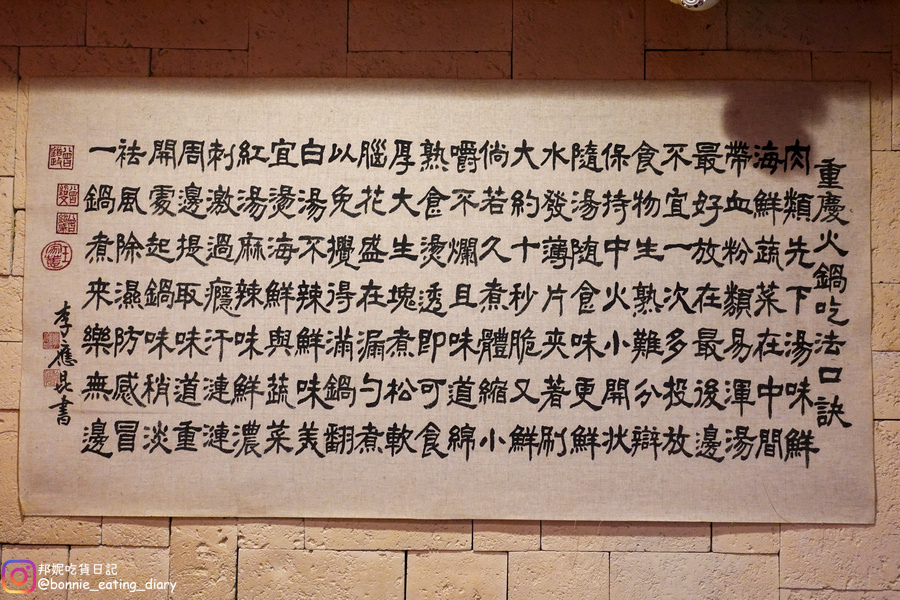 重慶火鍋吃法口訣
肉類先下湯味鮮
海鮮蔬菜在中間
帶血粉類易渾湯
最好放在最後邊
不宜一次多投放
食物生熟難分辯
保持中火小開狀
隨湯隨食味更鮮
水發薄片夾著刷
大約十秒脆又鮮
倘若久煮體縮小
嚼不爛且味道綿
熟食燙透即可食
厚大生塊煮松軟
腦花盛在漏勺煮
以免攪得滿鍋翻
白湯不辣鮮味美
宜燙海鮮與蔬菜
紅湯麻辣味鮮濃
刺激過癮汗漣漣
周邊提取味道重
開處起鍋味稍淡
祛風除濕防感冒
一鍋煮來樂無邊
李應昆書
邦妮吃貨日記
@bonnie_eating_diary